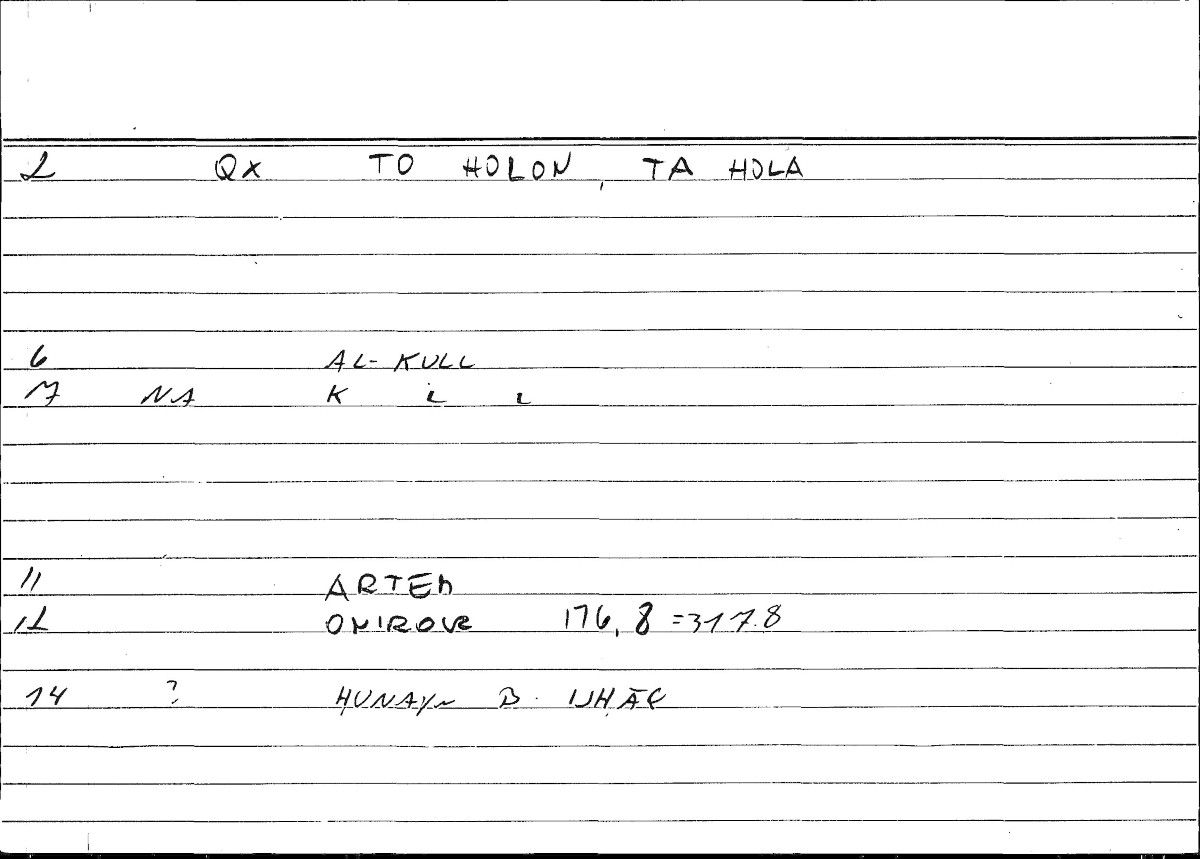 2 QX TO HOLON, TA HOLA
6 AL-KULL
7 NA K L L
11 ARTEM
12 ONIROCR 176, 8 = 317.8
14 ? ḤUNAYN B. ISḤĀQ